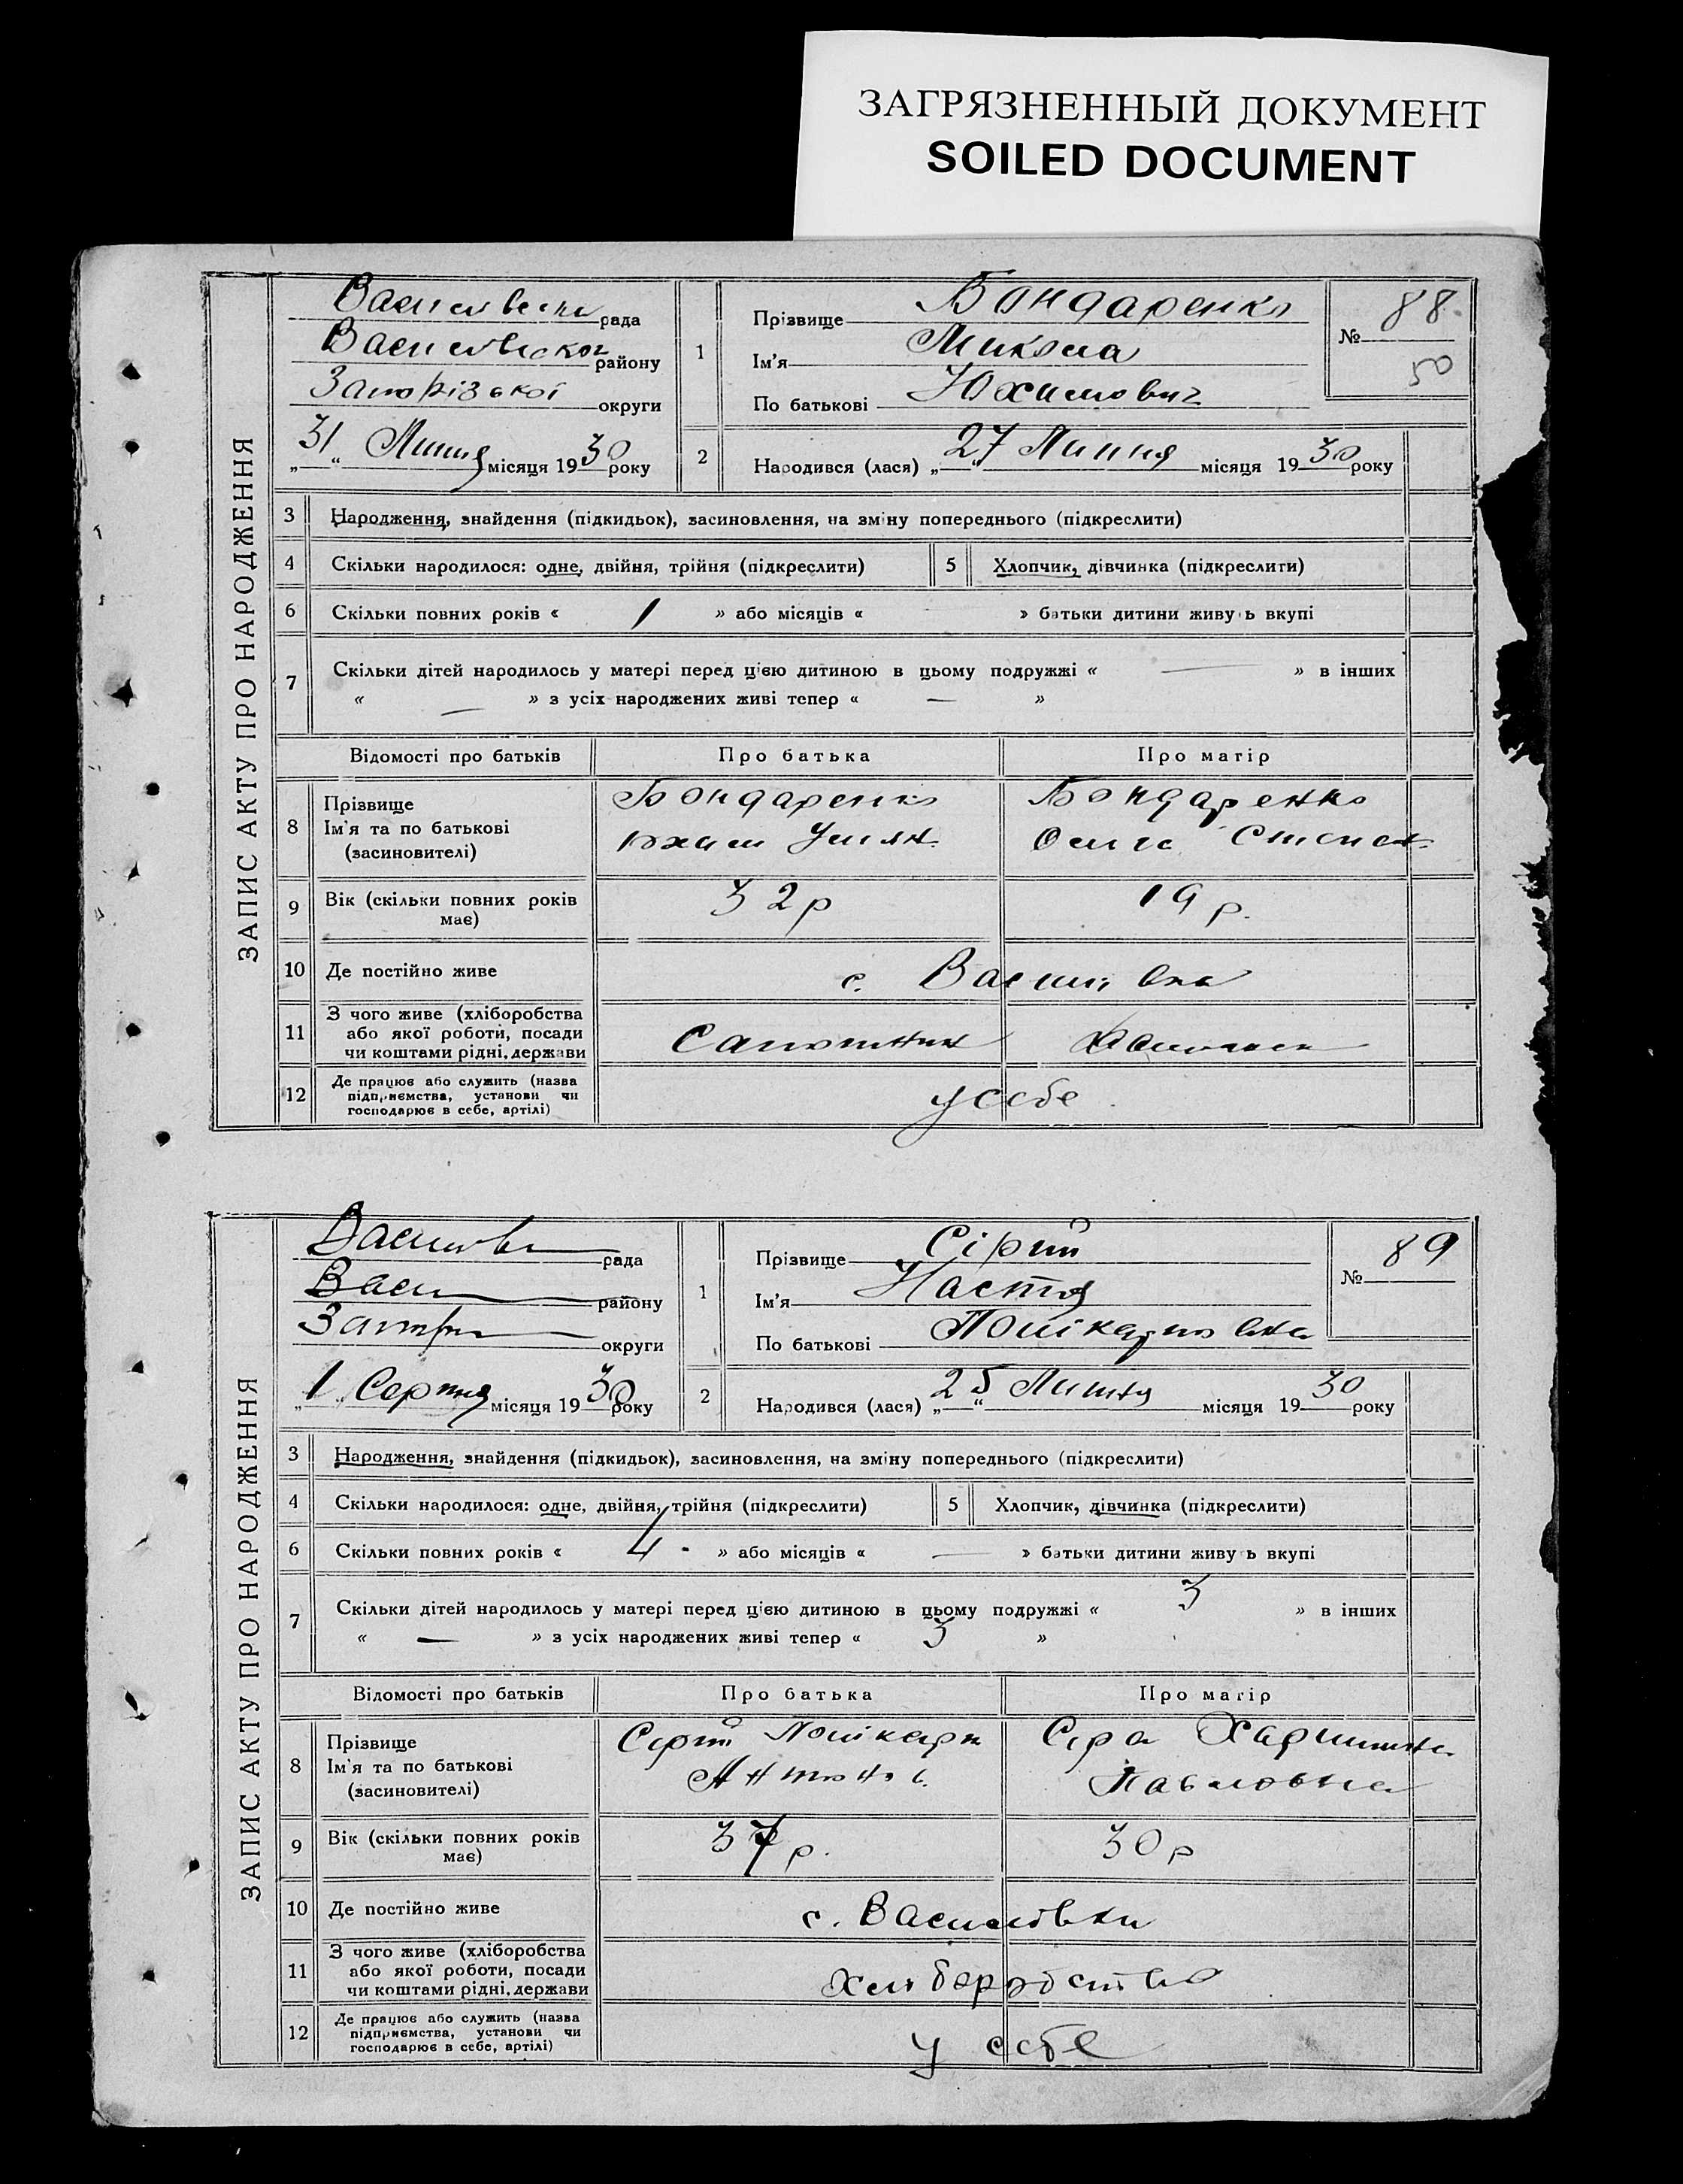 ЗАГРЯЗНЕННЫЙ ДОКУМЕНТ
SOILED DOCUMENT
ЗАПИС АКТУ ПРО НАРОДЖЕННЯ
рада
району
Запорізької округи
„31“ Липня місяця 1930 року
1
Прізвище Бондаренко
Ім'я Микола
По батькові Юхимович
№ 88
50
2
Народився (лася) „27“ Липня місяця 1930 року
3 Народження, знайдення (підкидьок), засиновлення, на зміну попереднього (підкреслити)
4 Скільки народилося: одне, двійня, трійня (підкреслити)
5 Хлопчик, дівчинка (підкреслити)
6 Скільки повних років « 1 » або місяців « » батьки дитини живуть вкупі
7 Скільки дітей народилось у матері перед цією дитиною в цьому подружжі « — » в інших
« — » з усіх народжених живі тепер « — »
Відомості про батьків Про батька Про матір
8 Прізвище
Ім'я та по батькові
(засиновителі)
Бондаренко
Юхим
Бондаренко
Ольга Степан.
9 Вік (скільки повних років має) 32 р 19 р.
10 Де постійно живе с. Василівка
11 З чого живе (хліборобства
або якої роботи, посади
чи коштами рідні, держави
Сапожник
12 Де працює або служить (назва
підприємства, установи чи
господарює в себе, артілі)
у себе
ЗАПИС АКТУ ПРО НАРОДЖЕННЯ
рада
району
округи
„1“ Серпня місяця 1930 року
1
Прізвище Сірий
Ім'я Настя
По батькові Полікарповна
№ 89
2
Народився (лася) „25“ Липня місяця 1930 року
3 Народження, знайдення (підкидьок), засиновлення, на зміну попереднього (підкреслити)
4 Скільки народилося: одне, двійня, трійня (підкреслити)
5 Хлопчик, дівчинка (підкреслити)
6 Скільки повних років « 4 » або місяців « — » батьки дитини живуть вкупі
7 Скільки дітей народилось у матері перед цією дитиною в цьому подружжі « 3 » в інших
« — » з усіх народжених живі тепер « 3 »
Відомості про батьків Про батька Про матір
8 Прізвище
Ім'я та по батькові
(засиновителі)
Сірий Полікарп
Антонов.
Сіра
Павловна
9 Вік (скільки повних років має) 37 р. 30 р
10 Де постійно живе с. Василовки
11 З чого живе (хліборобства
або якої роботи, посади
чи коштами рідні, держави
Хліборобство
12 Де працює або служить (назва
підприємства, установи чи
господарює в себе, артілі)
у себе